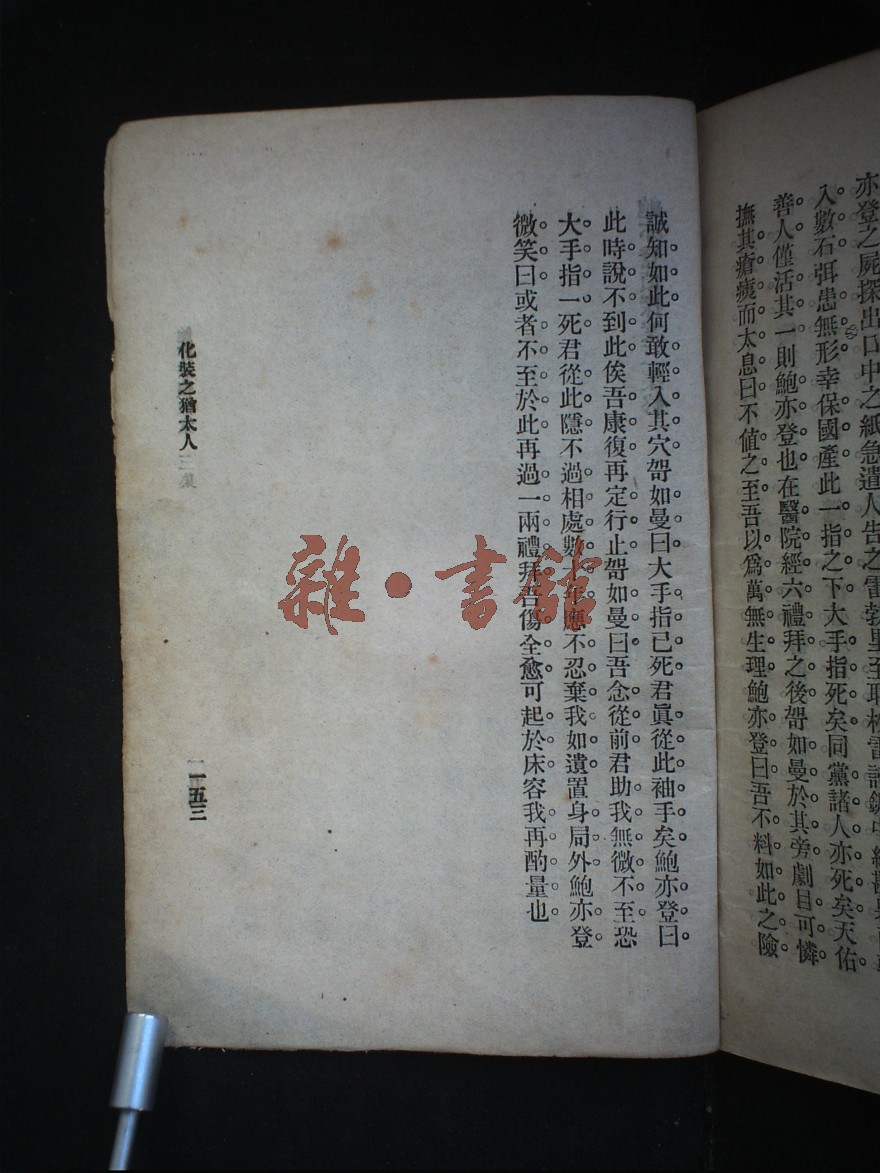 亦登之屍探出口中之紙急遣人告之雷勃里至耶
入數石弭患無形幸保國產此一指之下大手指死矣同黨諸人亦死矣天佑
善人僅活其一則鮑亦登也在醫院經六禮拜之後哿如曼於其旁劇目可憐
撫其瘡痍而太息曰不值之至吾以爲萬無生理鮑亦登曰吾不料如此之險
誠知如此何敢輕入其穴哿如曼曰大手指已死君眞從此袖手矣鮑亦登曰
此時說不到此俟吾康復再定行止哿如曼曰吾念從前君助我無微不至恐
大手指一死君從此隱不過相處數十年應不忍棄我如遺置身局外鮑亦登
微笑曰或者不至於此再過一兩禮拜吾傷全愈可起於床容我再酌量也
化裝之猶太人
一五三
雜·書館